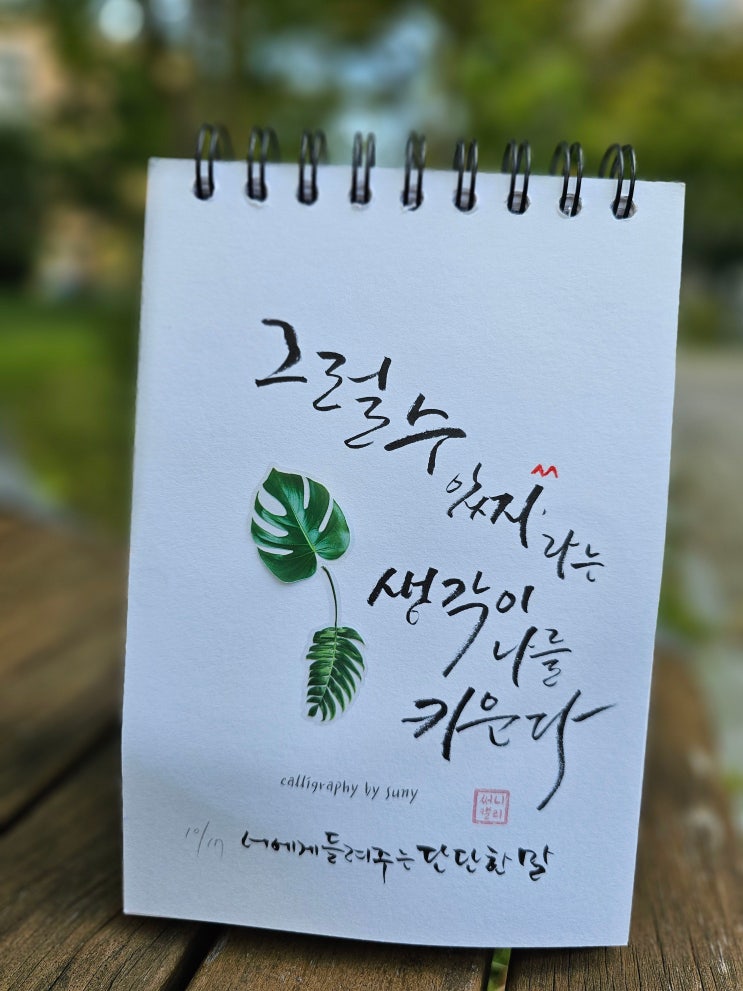 그럴 수
있지
라는
생각이
나를
키운다
calligraphy by suny
써니
캘리
10/17 너에게 들려주는 단단한 말